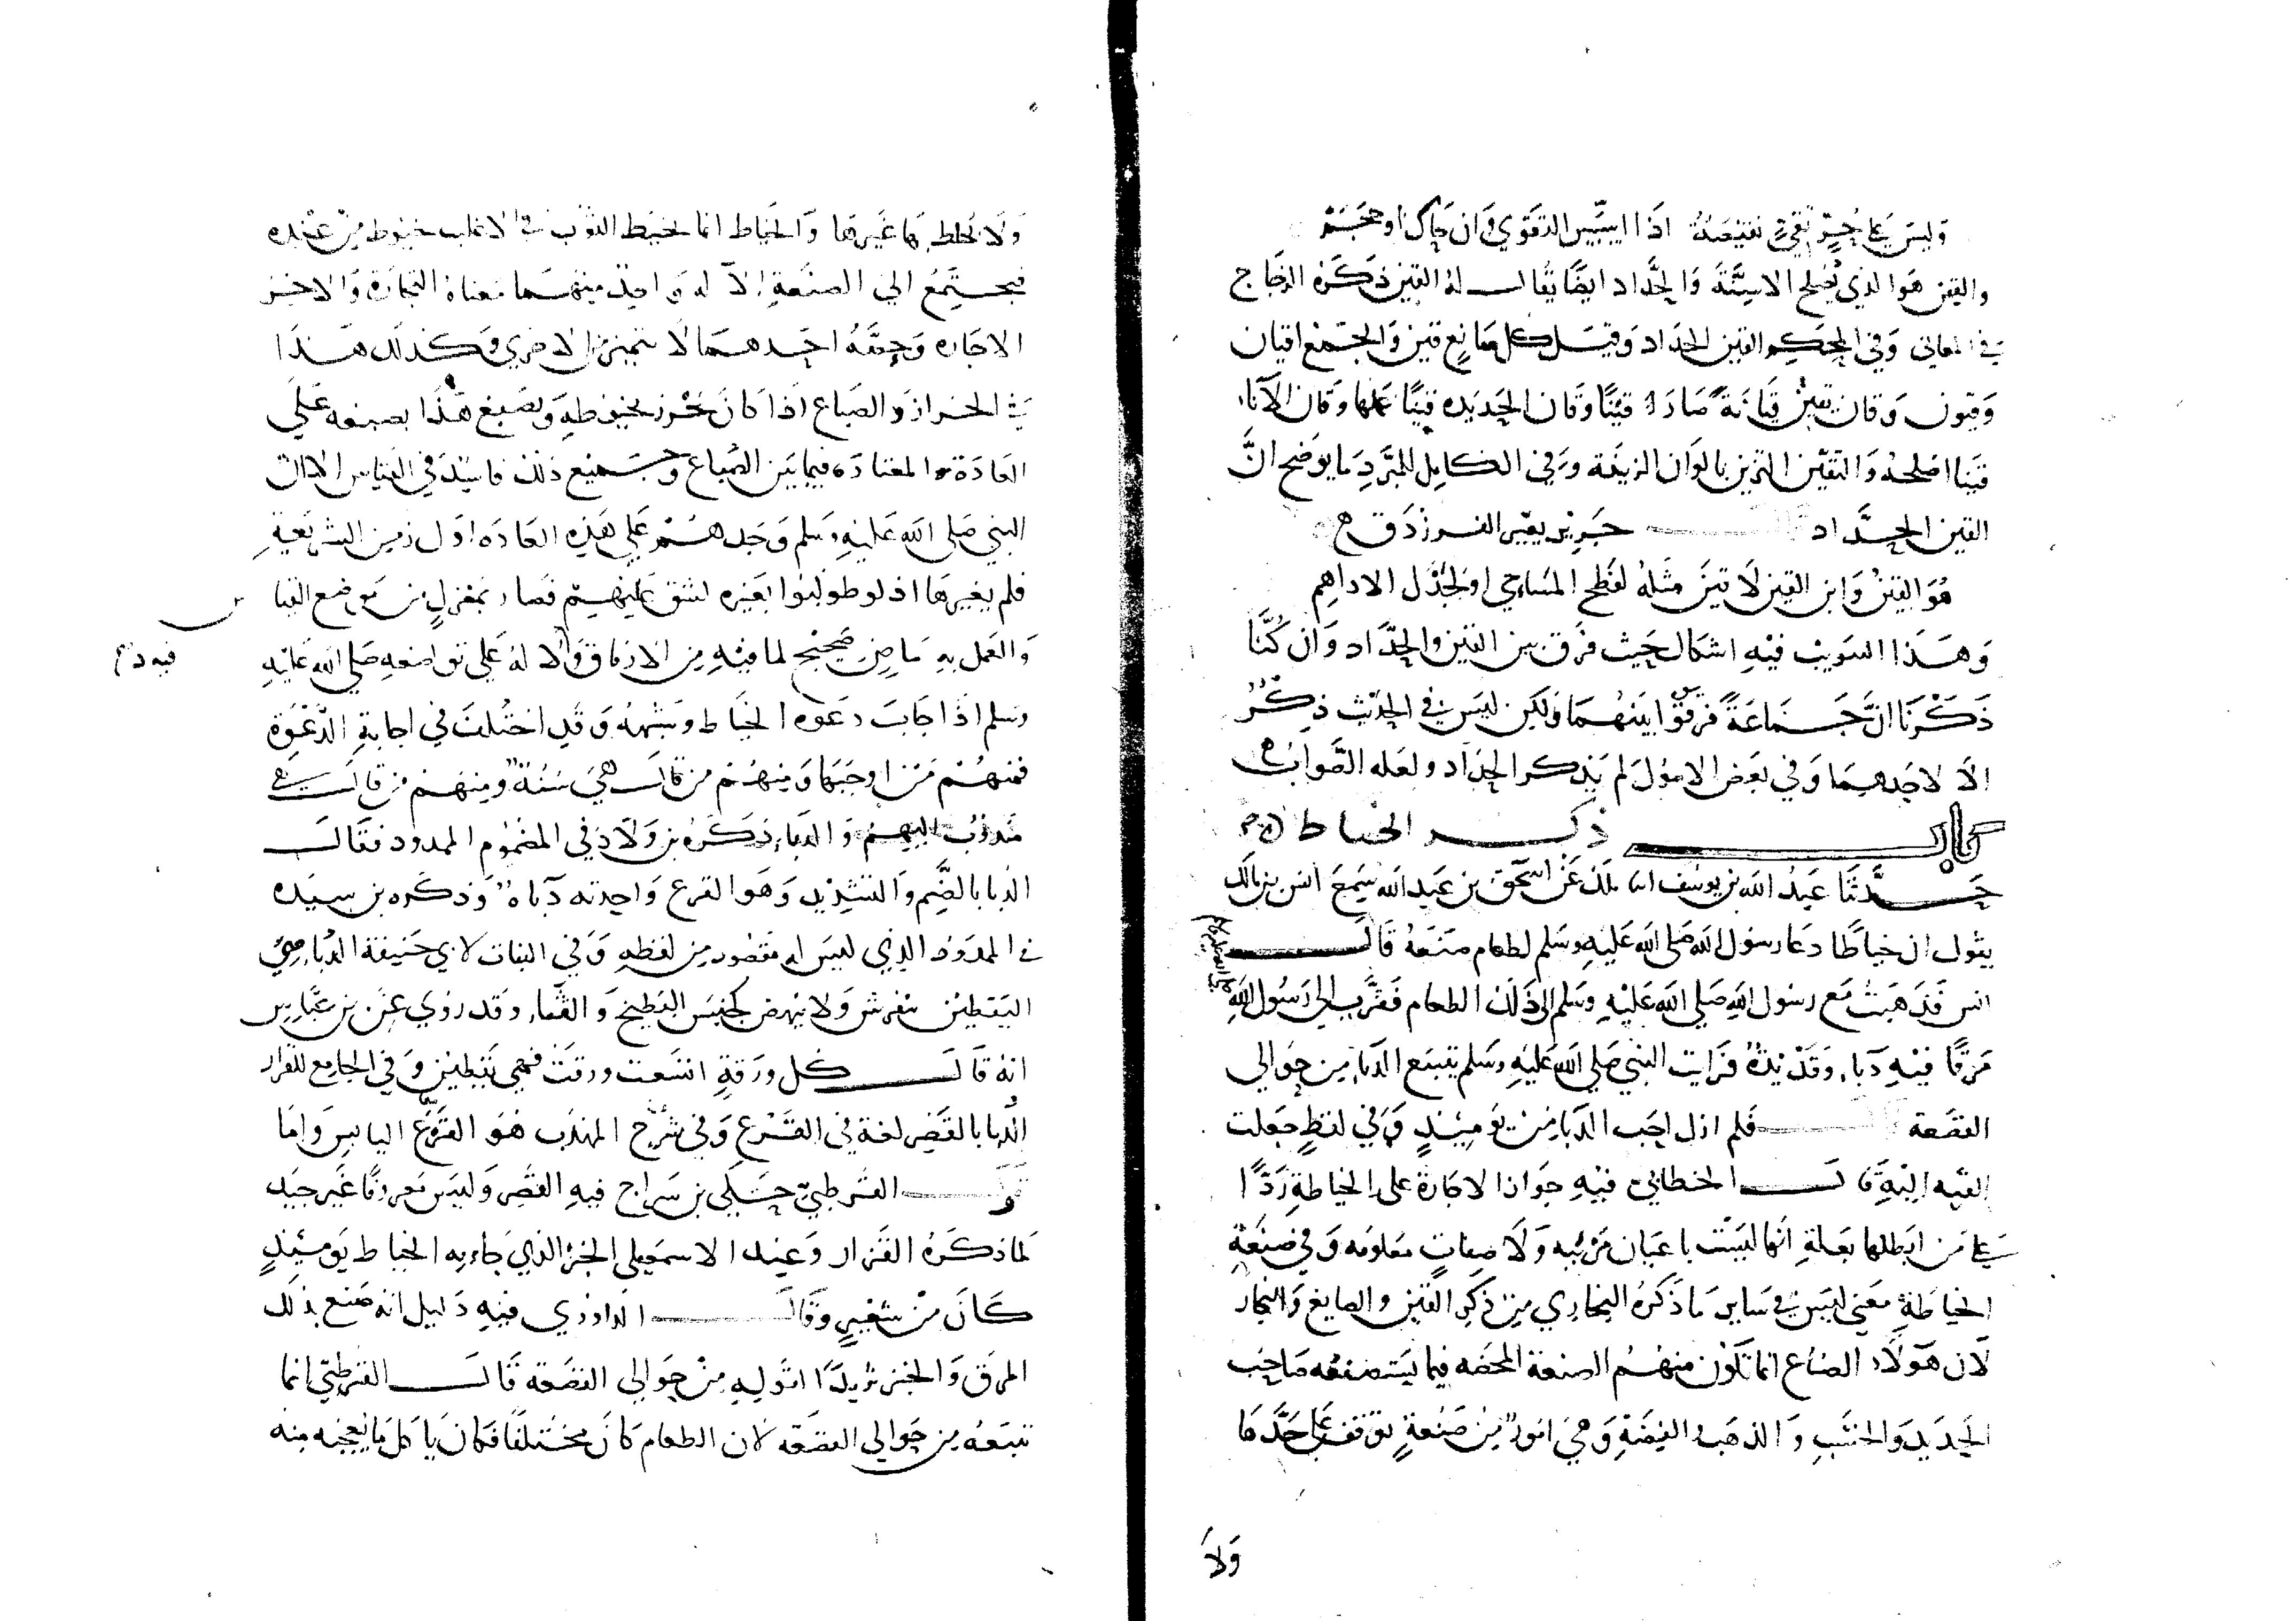 وليس على حر تقي نقيصة اذا اسس التقوي وان حاك او حجم
والقين هو الذي يصلح الاسنة والحداد ايضا يقال له القين ذكره الزجاج
في المعاني وفي المحكم القين الحداد وقيل كل صانع قين والجمع اقيان
وقيون وقان يقين قيانة صار قينا وقان الحديده قينا عملها وقان الاناء
قينا اصلحه والتقين التزين بالوان الزينة وفي الكامل للمبرد ما يوضح ان
القين الحداد جرير يعير الفرزدق
هو القين وابن القين لا قين مثله لفطح المساحي او لجدل الاداهم
وهذا التبويب فيه اشكال حيث فرق بين القين والحداد وان كنا
ذكرنا ان جماعة فرقوا بينهما ولكن ليس في الحديث ذكر
الا لاحدهما وفي بعض الاصول لم يذكر الحداد ولعله الصواب
باب ذكر الخياط
حدثنا عبد الله بن يوسف انا ملك عن اسحق بن عبد الله سمع انس بن مالك
يقول ان خياطا دعا رسول الله صلى الله عليه وسلم لطعام صنعه قال
انس فذهبت مع رسول الله صلي الله عليه وسلم الى ذلك الطعام فقرب الى رسول الله
مرقا فيه دباء وقديد فرايت النبي صلي الله عليه وسلم يتبع الدباء من حوالي
القصعة فلم ازل احب الدبا من يوميذ وفي لفظ جعلت
القيه اليه قال الخطابي فيه جواز الاجارة على الخياطة ردا
على من ابطلها بعلة انها ليست باعيان مرئيه ولا صفات معلومه وفي صنعة
الخياطة معنى ليس في ساير ما ذكره البخاري من ذكر القين والصايغ والنجار
لان هولاء الصناع انما تكون منهم الصنعة المحضه فيما يستصنعه صاحب
الحديد والخشب والذهب والفضة وهي امور من صنعة توقف على حدها
ولا
ولا يخلط بها غيرها والخياط انما يخيط الثوب في الاغلب بخيوط من عنده
فيجتمع الي الصنعة الآله واحدة منهما معناه التجارة والاخرى
الاجاره وحصة احدهما لا تتميز من الاخرى وكذلك هذا
في الخراز والصباغ اذا كان يخرز بخيوطه ويصبغ هذا بصبغه على
العادة المعتاده فيما بين الصباغ وجميع ذلك فاسد في القياس الا ان
النبي صلى الله عليه وسلم وجدهم علي هذه العاده اول زمن الشريعة
فلم يغيرها اذ لو طولبوا بغيره لشق عليهم فصار بمعزل من موضع القياس
والعمل به ماض صحيح لما فيه من الارفاق ولا له على تواضعه صلى الله عليه
فيه د
وسلم اذا اجاب دعوه الخياط وشبهه وقد اختلف في اجابة الدعوة
فمنهم من اوجبها ومنهم من قال هي سنة ومنهم من قال هي
مندوب اليهم والدباء ذكره بن ولاد في المضموم الممدود فقال
الدبا بالضم والتشديد وهو القرع واحدته دباه وذكره بن سيده
في الممدود الذي ليس له مقصور من لفظه وفي النبات لابي حنيفة الدباء هي
اليقطين ينفرش ولا ينهض كجنس البطيخ والقثاء وقد روي عن بن عباس
انه قال كل ورقة اتسعت ورقت فهي يقطين وفي الجامع للقزاز
الدبا بالقصر لغة في القرع وفي شرح المهذب هو القرع اليابس واما
قول القرطبي حكى بن سراج فيه القصر وليس معروفا غير جيد
لما ذكره القزاز وعند الاسمعيلي الخبز الذي جاء به الخياط يوميذ
كان من شعير وقال الداودي فيه دليل انه صنع بذلك
المرق والخبز ثريدا لقوله من حوالي القصعة قال القرطبي انما
تتبعه من حوالي القصعه لان الطعام كان مختلفا فكان ياكل ما يعجبه منه